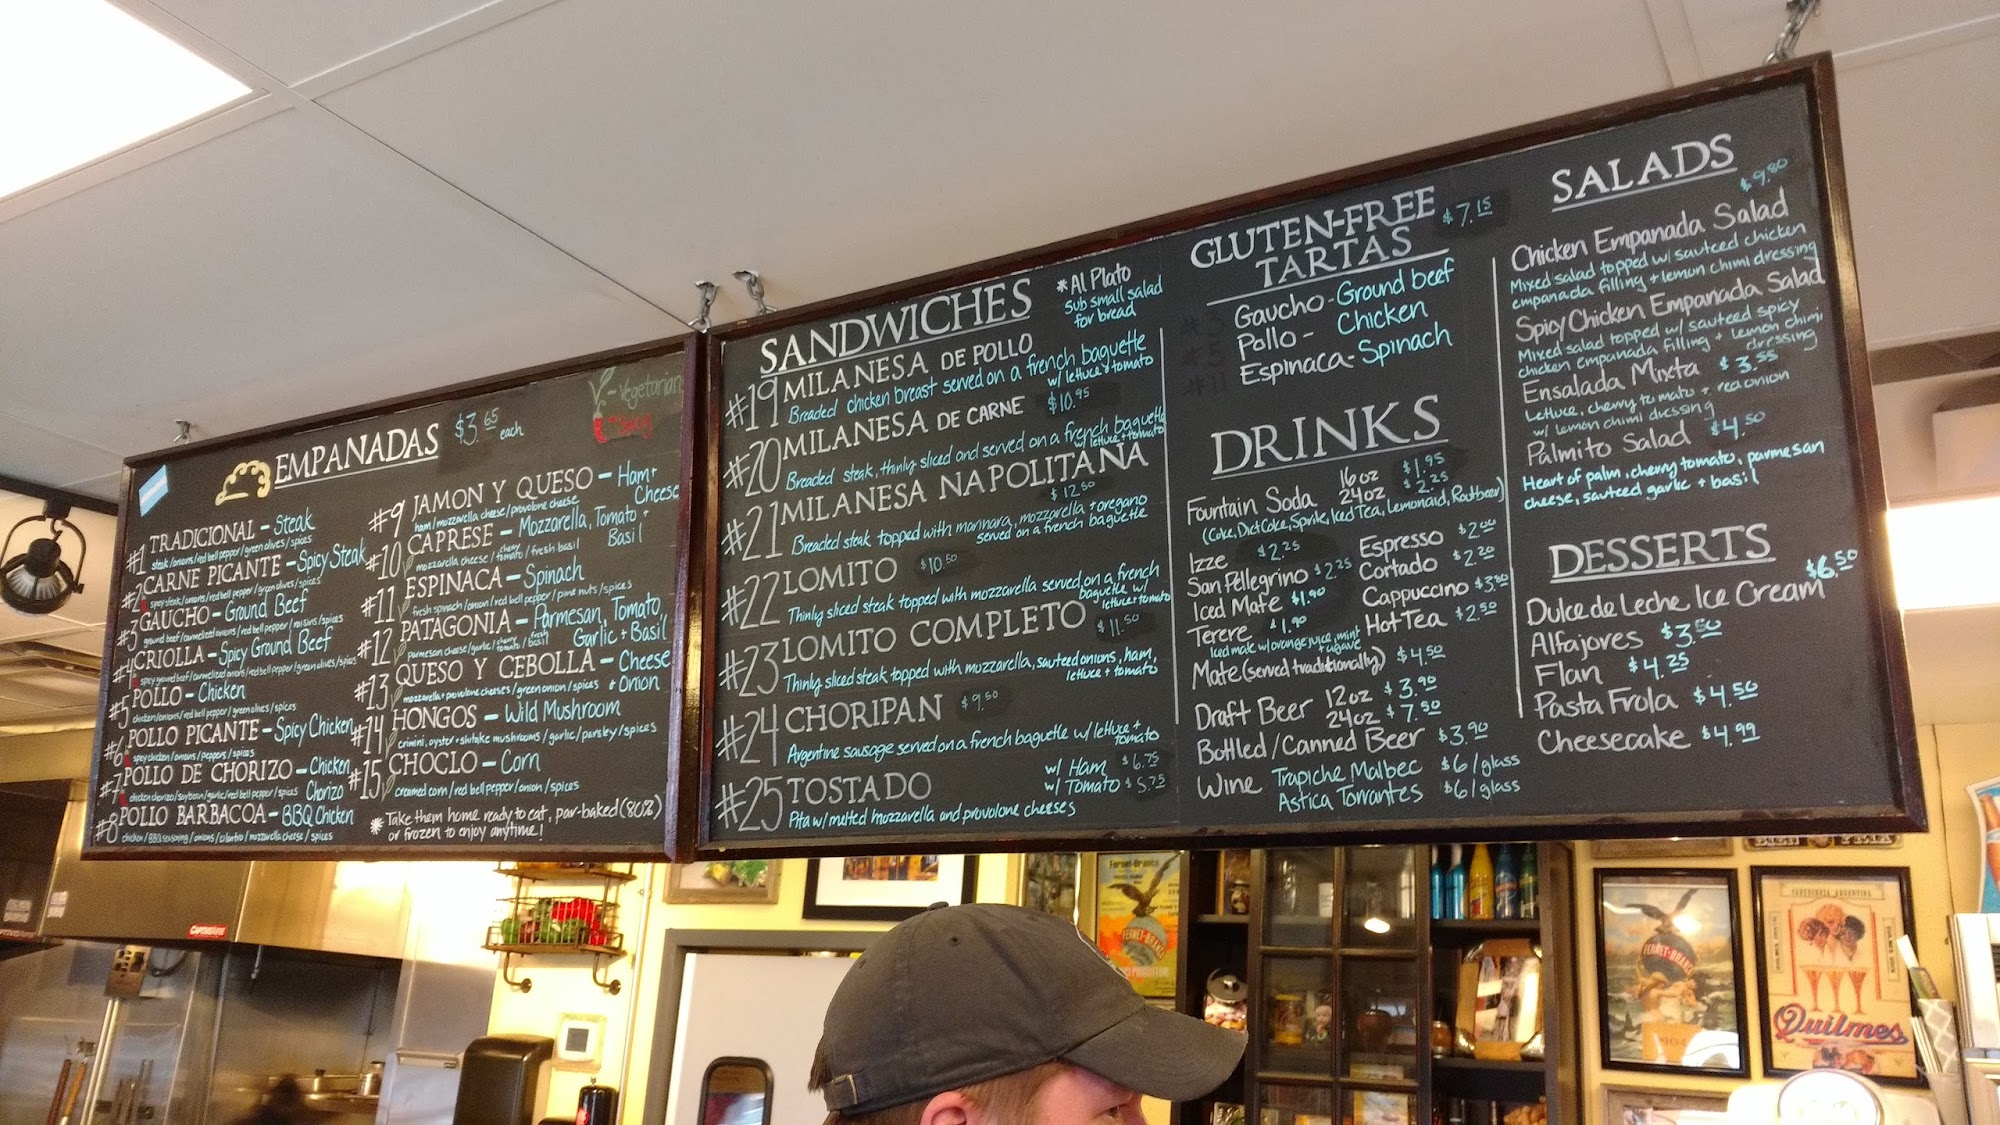 EMPANADAS $3.65 each
- Vegetarian
- Spicy
#1 TRADICIONAL - Steak
steak/onions/red bell pepper/green olives/spices
#2 CARNE PICANTE - Spicy Steak
spicy steak/onions/red bell pepper/green olives/spices
#3 GAUCHO - Ground Beef
ground beef/carmelized onions/red bell pepper/raisins/spices
#4 CRIOLLA - Spicy Ground Beef
spicy ground beef/carmelized onions/red bell pepper/green olives/spices
#5 POLLO - Chicken
chicken/onions/red bell pepper/green olives/spices
#6 POLLO PICANTE - Spicy Chicken
spicy chicken/onions/peppers/spices
#7 POLLO DE CHORIZO - Chicken Chorizo
chicken chorizo/soybean/garlic/red bell pepper/spices
#8 POLLO BARBACOA - BBQ Chicken
chicken/BBQ seasoning/onions/cilantro/mozzarella cheese/spices
#9 JAMON Y QUESO - Ham + Cheese
ham/mozzarella cheese/provolone cheese
#10 CAPRESE - Mozzarella, Tomato + Basil
mozzarella cheese/cherry tomato/fresh basil
#11 ESPINACA - Spinach
fresh spinach/onion/red bell pepper/pine nuts/spices
#12 PATAGONIA - Parmesan, Tomato, Garlic + Basil
parmesan cheese/garlic/cherry tomato/fresh basil
#13 QUESO Y CEBOLLA - Cheese + Onion
mozzarella + provolone cheeses/green onion/spices
#14 HONGOS - Wild Mushroom
crimini, oyster + shitake mushrooms/garlic/parsley/spices
#15 CHOCLO - Corn
creamed corn/red bell pepper/onion/spices
* Take them home ready to eat, par-baked (80%)
or frozen to enjoy anytime!
SANDWICHES
*Al Plato
Sub small salad
for bread
#19 MILANESA DE POLLO
Breaded chicken breast served on a french baguette
w/ lettuce + tomato
#20 MILANESA DE CARNE $10.95
Breaded steak, thinly sliced and served on a french baguette
w/ lettuce + tomato
#21 MILANESA NAPOLITANA
$12.50
Breaded steak topped with marinara, mozzarella + oregano
served on a french baguette
#22 LOMITO $10.50
Thinly sliced steak topped with mozzarella served on a french
baguette w/ lettuce + tomato
#23 LOMITO COMPLETO $11.50
Thinly sliced steak topped with mozzarella, sauteed onions, ham,
lettuce + tomato
#24 CHORIPAN $9.50
Argentine sausage served on a french baguette w/ lettuce +
tomato
#25 TOSTADO
w/ Ham $6.75
w/ Tomato $5.75
Pita w/ melted mozzarella and provolone cheeses
GLUTEN-FREE $7.15
TARTAS
Gaucho - Ground beef
Pollo - Chicken
Espinaca - Spinach
DRINKS
Fountain Soda 16oz $1.95
24oz $2.25
(Coke, Diet Coke, Sprite, Iced Tea, Lemonaid, Rootbeer)
Izze $2.25
San Pellegrino $2.25
Iced Mate $1.90
Terere $1.90
Iced mate w/ orange juice, mint
+ agave
Espresso $2.00
Cortado $2.20
Cappuccino $3.50
Hot Tea $2.50
Mate (served traditionally) $4.50
Draft Beer 12oz $3.90
24oz $7.50
Bottled/Canned Beer $3.90
Wine Trapiche Malbec $6/glass
Astica Torrontes $6/glass
SALADS
$9.80
Chicken Empanada Salad
Mixed salad topped w/ sauteed chicken
empanada filling + lemon chimi dressing
Spicy Chicken Empanada Salad
Mixed salad topped w/ sauteed spicy
chicken empanada filling + lemon chimi
dressing
Ensalada Mixta $3.55
Lettuce, cherry tomato + red onion
w/ lemon chimi dressing
Palmito Salad $4.50
Heart of palm, cherry tomato, parmesan
cheese, sauteed garlic + basil
DESSERTS
$6.50
Dulce de Leche Ice Cream
Alfajores $3.50
Flan $4.25
Pasta Frola $4.50
Cheesecake $4.99
CAPTIVEAIRE
FERNET-BRANCA
Fernet-Branca
FERNET-BRANCA
CERVECERIA ARGENTINA
Quilmes